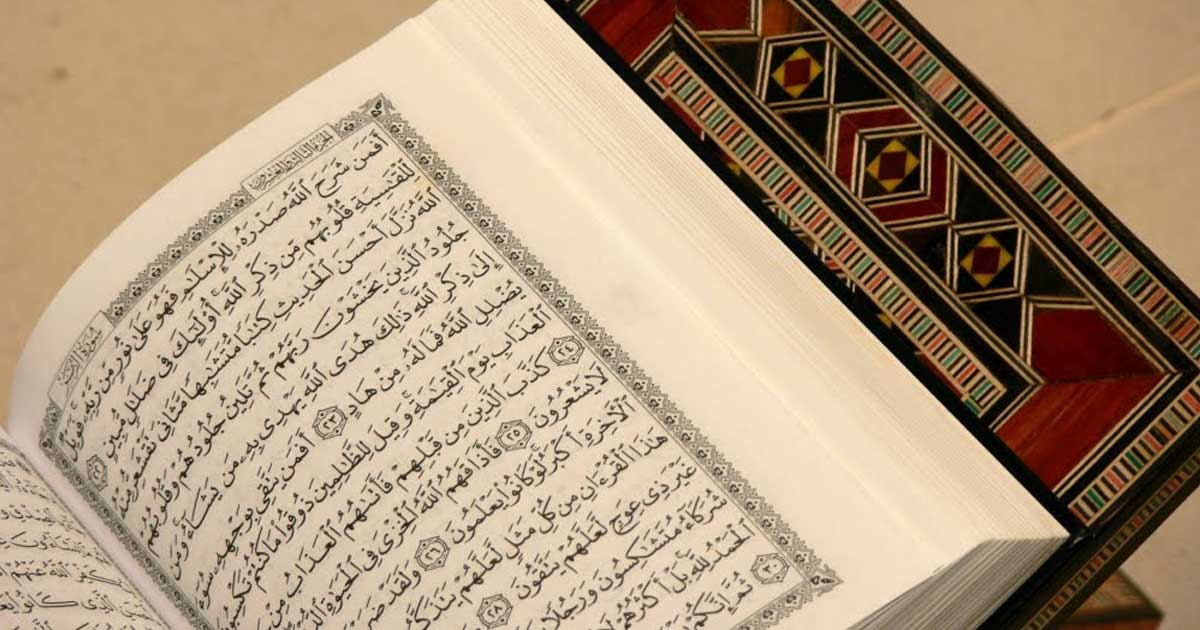 الجزء الثالث والعشرون
سورة الزمر
أَفَمَن شَرَحَ ٱللَّهُ صَدْرَهُۥ لِلْإِسْلَٰمِ فَهُوَ عَلَىٰ نُورٍ مِّن رَّبِّهِۦ ۚ فَوَيْلٌ
لِّلْقَٰسِيَةِ قُلُوبُهُم مِّن ذِكْرِ ٱللَّهِ ۚ أُو۟لَٰٓئِكَ فِى ضَلَٰلٍ مُّبِينٍ ٢٢
ٱللَّهُ نَزَّلَ أَحْسَنَ ٱلْحَدِيثِ كِتَٰبًا مُّتَشَٰبِهًا مَّثَانِىَ تَقْشَعِرُّ مِنْهُ
جُلُودُ ٱلَّذِينَ يَخْشَوْنَ رَبَّهُمْ ثُمَّ تَلِينُ جُلُودُهُمْ وَقُلُوبُهُمْ
إِلَىٰ ذِكْرِ ٱللَّهِ ۚ ذَٰلِكَ هُدَى ٱللَّهِ يَهْدِى بِهِۦ مَن يَشَآءُ ۚ وَمَن
يُضْلِلِ ٱللَّهُ فَمَا لَهُۥ مِنْ هَادٍ ٢٣ أَفَمَن يَتَّقِى بِوَجْهِهِۦ سُوٓءَ
ٱلْعَذَابِ يَوْمَ ٱلْقِيَٰمَةِ ۚ وَقِيلَ لِلظَّٰلِمِينَ ذُوقُوا۟ مَا كُنتُمْ تَكْسِبُ
٢٤ كَذَّبَ ٱلَّذِينَ مِن قَبْلِهِمْ فَأَتَىٰهُمُ ٱلْعَذَابُ مِنْ
لَا يَشْعُرُونَ ٢٥ فَأَذَاقَهُمُ ٱللَّهُ ٱلْخِزْىَ فِى ٱلْحَيَوٰةِ
ٱلْءَاخِرَةِ أَكْبَرُ ۚ لَوْ كَانُوا۟ يَعْلَمُونَ ٢٦ وَلَقَدْ ضَرَ
هَٰذَا ٱلْقُرْءَانِ مِن كُلِّ مَثَلٍ لَّعَلَّهُمْ يَتَذَكَّرُ
غَيْرَ ذِى عِوَجٍ لَّعَلَّهُمْ يَتَّقُونَ ٢٨
شُرَكَآءُ مُتَشَٰكِسُونَ وَرَجُلًا
ٱلْحَمْدُ لِلَّهِ ۚ بَلْ أَكْثَرُهُمْ لَا
٣٠ ثُمَّ إِنَّكُمْ